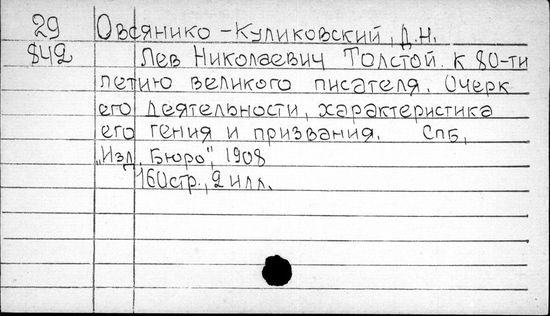 29 Овсянико-Куликовский, Д.Н.
842 Лев Николаевич Толстой. К 80-ти
летию великого писателя. Очерк
его деятельности, характеристика
его гения и призвания. СПБ,
"Изд. Бюро", 1908
160стр., 2 илл.